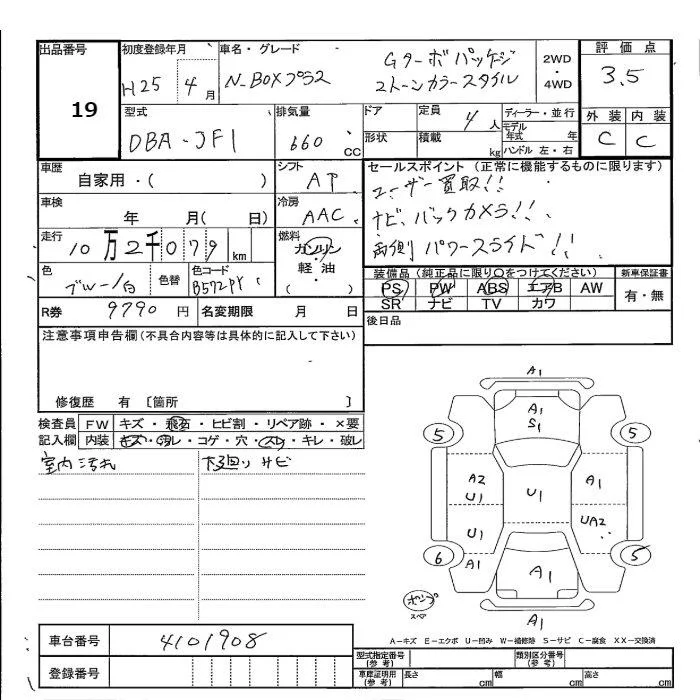 出品番号
19
初度登録年月
H25 4 月
車名・グレード
N-BOXプラス
Gターボパッケージ
2トーンカラースタイル
2WD
・
4WD
評価点
3.5
外装 内装
C C
型式
DBA-JF1
排気量
660 cc
ドア
形状
定員 4 人
積載 kg
ディーラー・並行
モデル
年式 年
ハンドル 左・右
車歴
自家用・( )
シフト
AT
セールスポイント (正常に機能するものに限ります)
ユーザー買取!!
ナビ、バックカメラ!!
両側パワースライド!!
車検
年 月( 日)
冷房
AAC
走行
10万2千079 km
燃料
ガソリン
・
軽油
( )
色
ブルー/白
色替
色コード
B572PY
装備品 (純正品に限り○をつけてください)
PS PW ABS エアB AW
SR ナビ TV カワ
新車保証書
有・無
R券 9790 円
名変期限 月 日
後日品
注意事項申告欄 (不具合内容等は具体的に記入して下さい)
修復歴 有 〔箇所 〕
検査員
記入欄
FW キズ・飛石・ヒビ割・リペア跡・×要
内装 キズ・汚レ・コゲ・穴・スレ・キレ・破レ
室内汚れ
下廻りサビ
A1
A1
S1
5 5
A2
U1
U1
A1
U1
UA2
6 A1
A1
5
ボンプ
スペア
A1
A-キズ E-エクボ U-凹み W-補修跡 S-サビ C-腐食 XX-交換済
車台番号 4101908
登録番号
型式指定番号
(参考)
類別区分番号
(参考)
車庫証明用
(参考)
長さ cm 幅 cm 高さ cm